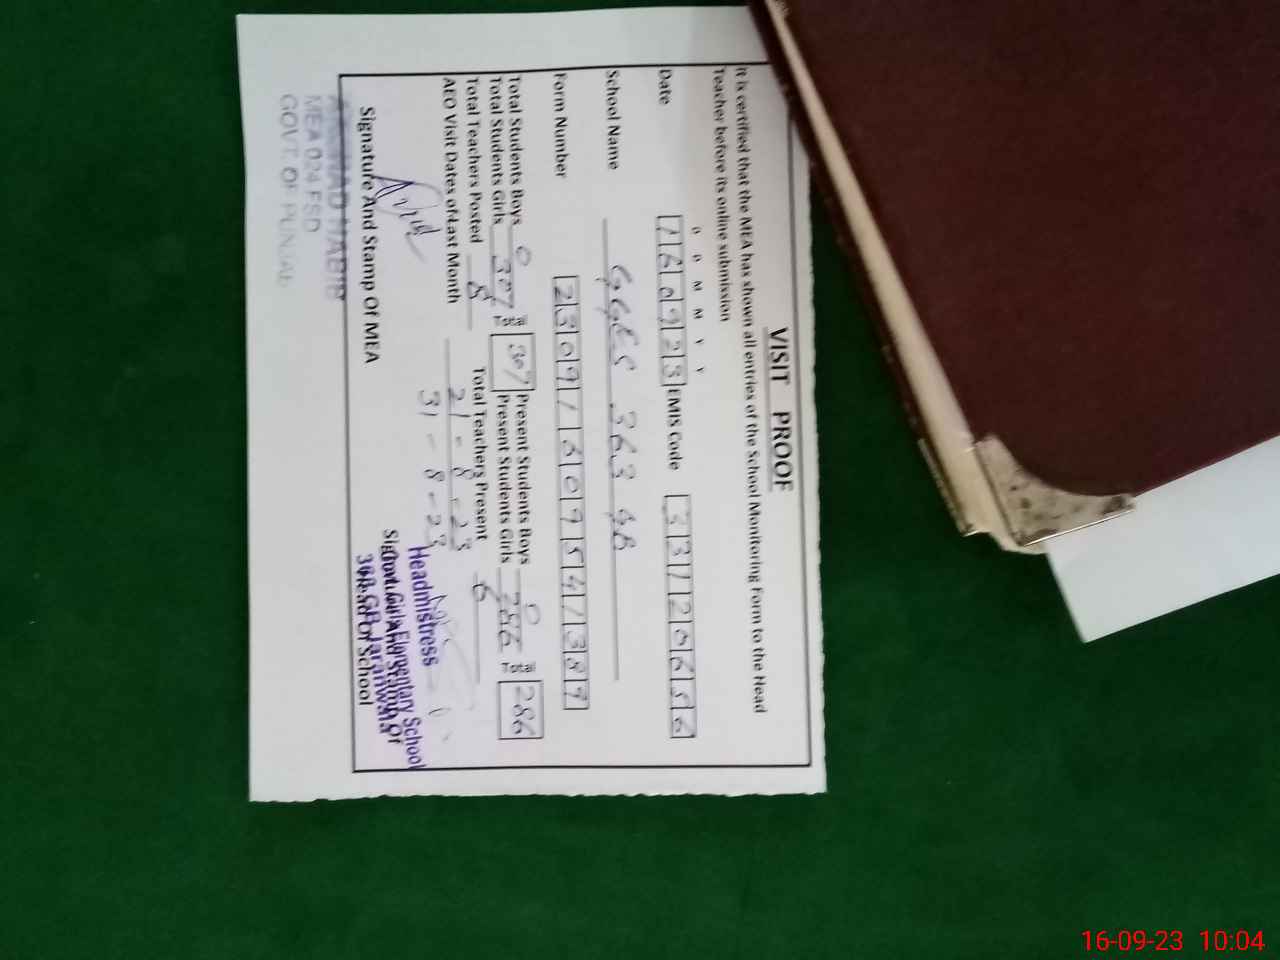 VISIT PROOF
It is certified that the MEA has shown all entries of the School Monitoring Form to the Head
Teacher before its online submission
D D M M Y Y
Date 160923 EMIS Code 33120656
School Name GGES 363 GB
Form Number 2309160954138
Total Students Boys 0 Present Students Boys 0
Total Students Girls 307 307 Present Students Girls 286 286
Total Teachers Posted 8 Total Teachers Present 6
AEO Visit Dates of Last Month 21-8-23
31-8-23
Signature And Stamp Of MEA
Headmistress
Govt. Girls Elementary School
Signature And Stamp Of
Head Of School
HABIB
MEA 024 FSD
GOVT. OF PUNJAB
16-09-23 10:04